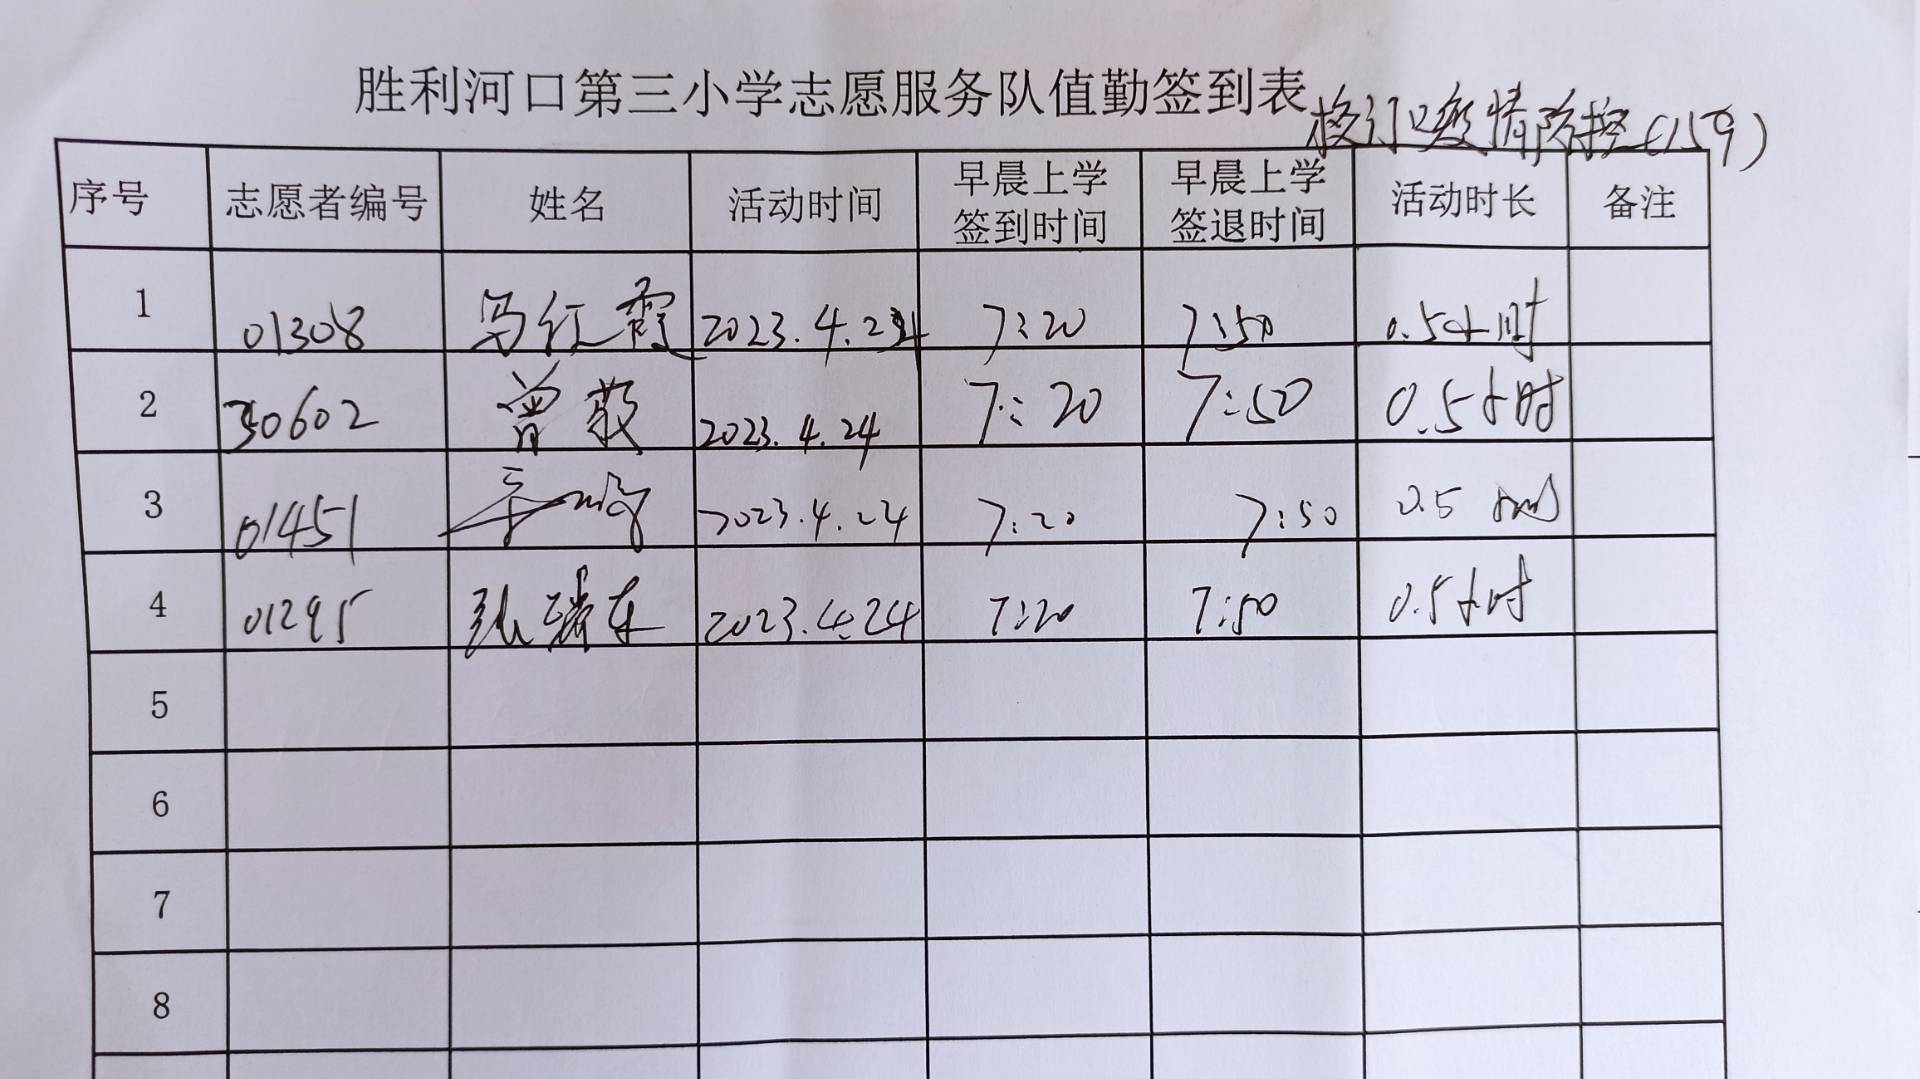 胜利河口第三小学志愿服务队值勤签到表
校门口疫情防控(159)
序号 志愿者编号 姓名 活动时间 早晨上学签到时间 早晨上学签退时间 活动时长 备注
1 01308 马红霞 2023.4.24 7:20 7:50 0.5小时
2 30602 曾敬 2023.4.24 7:20 7:50 0.5小时
3 01451 2023.4.24 7:20 7:50 0.5小时
4 01295 张瑞东 2023.4.24 7:20 7:50 0.5小时
5
6
7
8